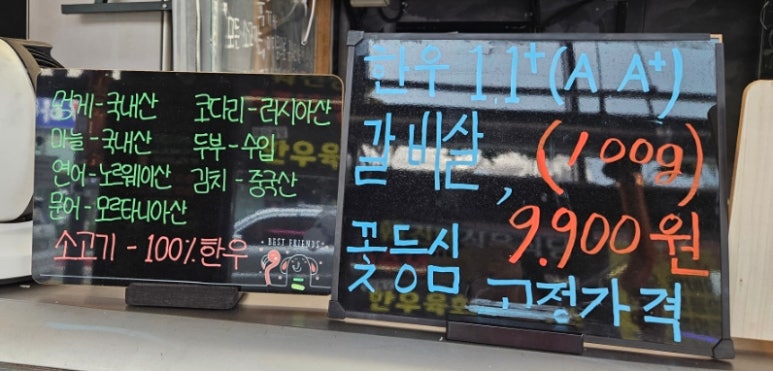 멍게-국내산 코다리-러시아산
마늘-국내산 두부-수입
연어-노르웨이산 김치-중국산
문어-모르타니아산
소고기-100% 한우
BEST FRIENDS
한우 1,1+(A A+)
갈비살, (100g)
꽃등심 9.900원
고정가격